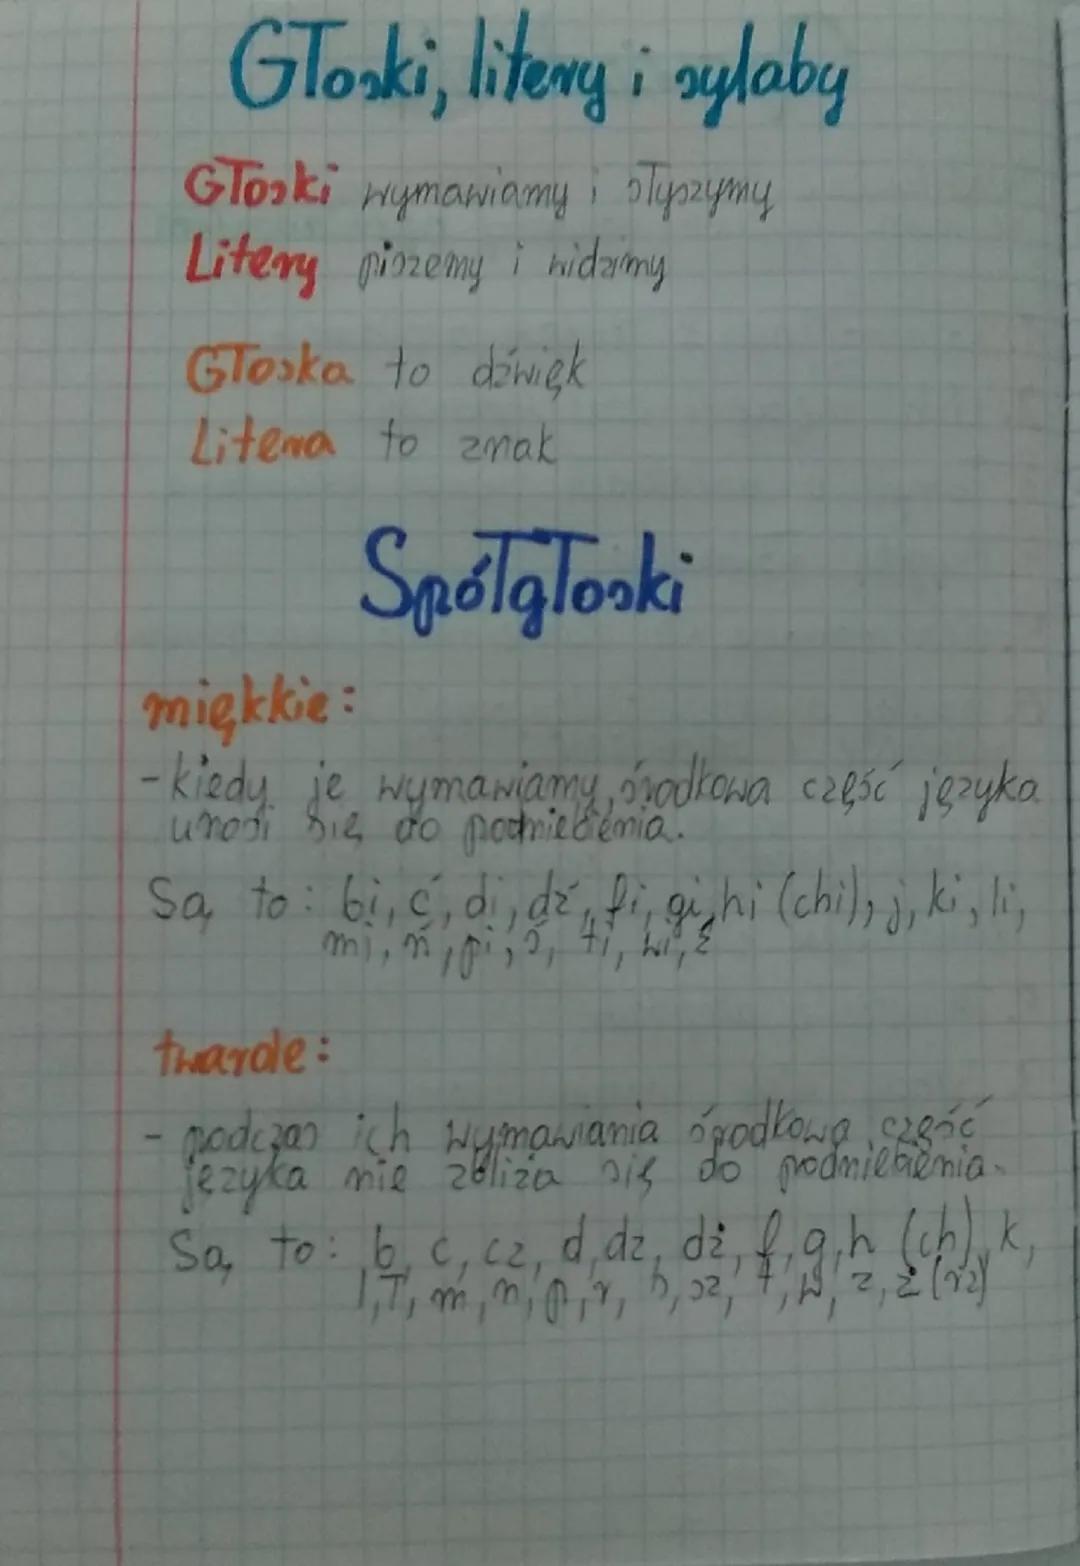 Głoski, litery i sylaby
Głoski wymawiamy i słyszymy
Litery piszemy i widzimy
Głoska to dźwięk
Litera to znak
Spółgłoski
miękkie:
- kiedy je wymawiamy, środkowa część języka
unosi się do podniebienia.
Są to: bi, ć, di, dź, fi, gi, hi (chi), j, ki, li,
mi, ń, pi, ś, ti, wi, ź
twarde:
- podczas ich wymawiania środkowa część
języka nie zbliża się do podniebienia.
Są to: b, c, cz, d, dz, dż, f, g, h (ch), k,
l, ł, m, n, p, r, s, sz, t, w, z, ż (rz)